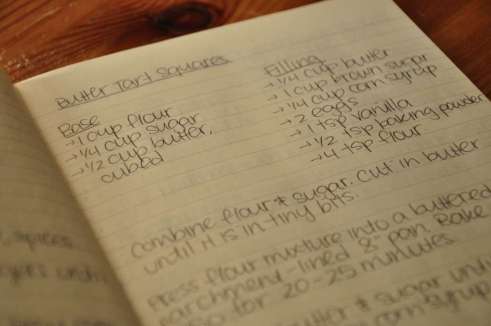 Butter Tart Squares
Base
→ 1 cup flour
→ 1/4 cup sugar
→ 1/2 cup butter,
cubed
Filling
→ 1/4 cup butter
→ 1 cup brown sugar
→ 1/4 cup corn syrup
→ 2 eggs
→ 1 tsp vanilla
→ 1/2 tsp baking powder
→ 4 tsp flour
Combine flour & sugar. Cut in butter
until it is in tiny bits.
Press flour mixture into a buttered
parchment-lined 8" pan. Bake
for 20-25 minutes.
butter & sugar until
corn syrup
spices
until